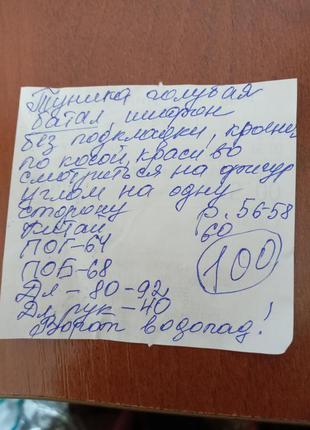 Туника голубая
батал, шифон
без подкладки, кроенн
по косой, красиво
смотриться на фигур
углом на одну
сторону р. 56-58
Китай 60
ПОГ-64 100
ПОБ-68
Дл - 80-92
Дл рук - 40
Ворот водопад!